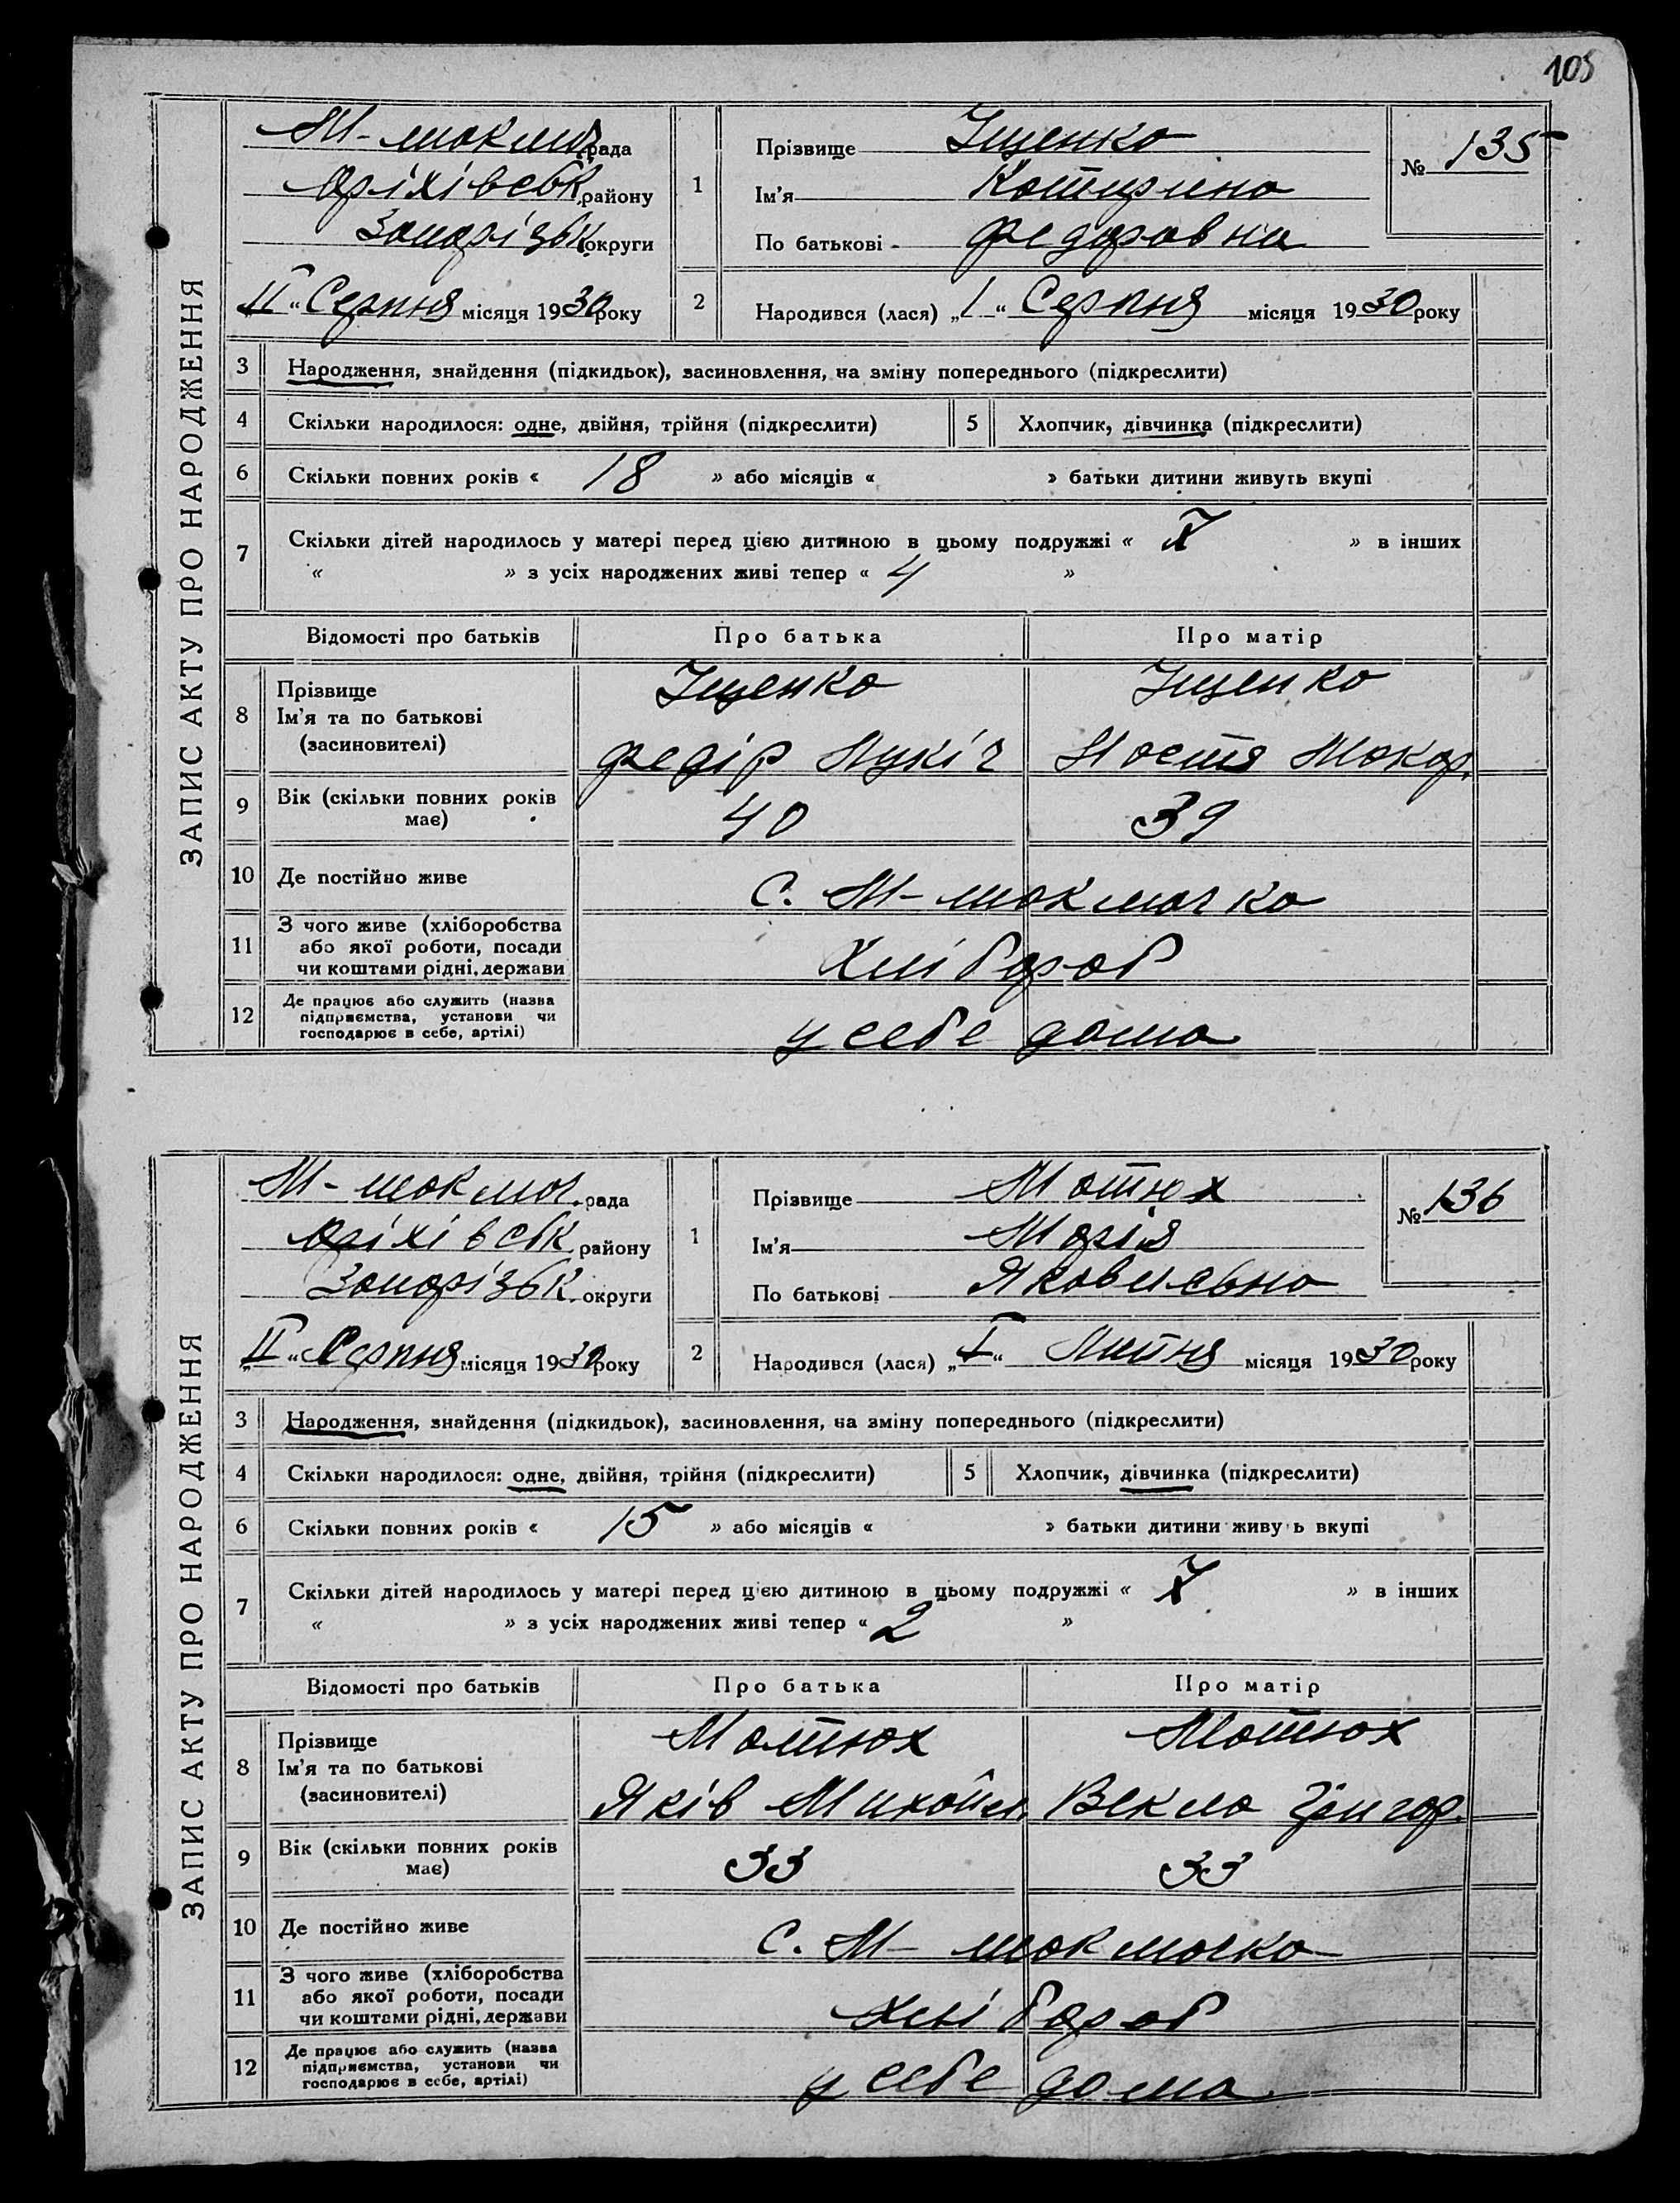 105
ЗАПИС АКТУ ПРО НАРОДЖЕННЯ
М-токмач. рада
Оріхівськ. району
Запорізьк. округи
„II“ Серпня місяця 1930 року
1
Прізвище Іщенко
Ім'я Катирина
По батькові Федоровна
№ 135
2
Народився (лася) „1“ Серпня місяця 1930 року
3 Народження, знайдення (підкидьок), засиновлення, на зміну попереднього (підкреслити)
4 Скільки народилося: одне, двійня, трійня (підкреслити)
5 Хлопчик, дівчинка (підкреслити)
6 Скільки повних років « 18 » або місяців « » батьки дитини живуть вкупі
7 Скільки дітей народилось у матері перед цією дитиною в цьому подружжі « » в інших
« » з усіх народжених живі тепер « 4 »
Відомості про батьків Про батька Про матір
8 Прізвище
Ім'я та по батькові
(засиновителі)
Іщенко Іщенко
Федір Лукіч Настя Макар.
9 Вік (скільки повних років має) 40 39
10 Де постійно живе с. М-токмачка
11 З чого живе (хліборобства
або якої роботи, посади
чи коштами рідні, держави
Хлібороб
12 Де працює або служить (назва
підприємства, установи чи
господарює в себе, артілі)
у себе дома
ЗАПИС АКТУ ПРО НАРОДЖЕННЯ
М-токмач. рада
Оріхівськ. району
Запорізьк. округи
„II“ Серпня місяця 1930 року
1
Прізвище Матюх
Ім'я Марія
По батькові Яковлевна
№ 136
2
Народився (лася) „I“ Липня місяця 1930 року
3 Народження, знайдення (підкидьок), засиновлення, на зміну попереднього (підкреслити)
4 Скільки народилося: одне, двійня, трійня (підкреслити)
5 Хлопчик, дівчинка (підкреслити)
6 Скільки повних років « 15 » або місяців « » батьки дитини живуть вкупі
7 Скільки дітей народилось у матері перед цією дитиною в цьому подружжі « » в інших
« » з усіх народжених живі тепер « 2 »
Відомості про батьків Про батька Про матір
8 Прізвище
Ім'я та по батькові
(засиновителі)
Матюх Матюх
Яків Михайл. Векла Григор.
9 Вік (скільки повних років має) 33 33
10 Де постійно живе с. М-токмачка
11 З чого живе (хліборобства
або якої роботи, посади
чи коштами рідні, держави
Хлібороб
12 Де працює або служить (назва
підприємства, установи чи
господарює в себе, артілі)
у себе дома